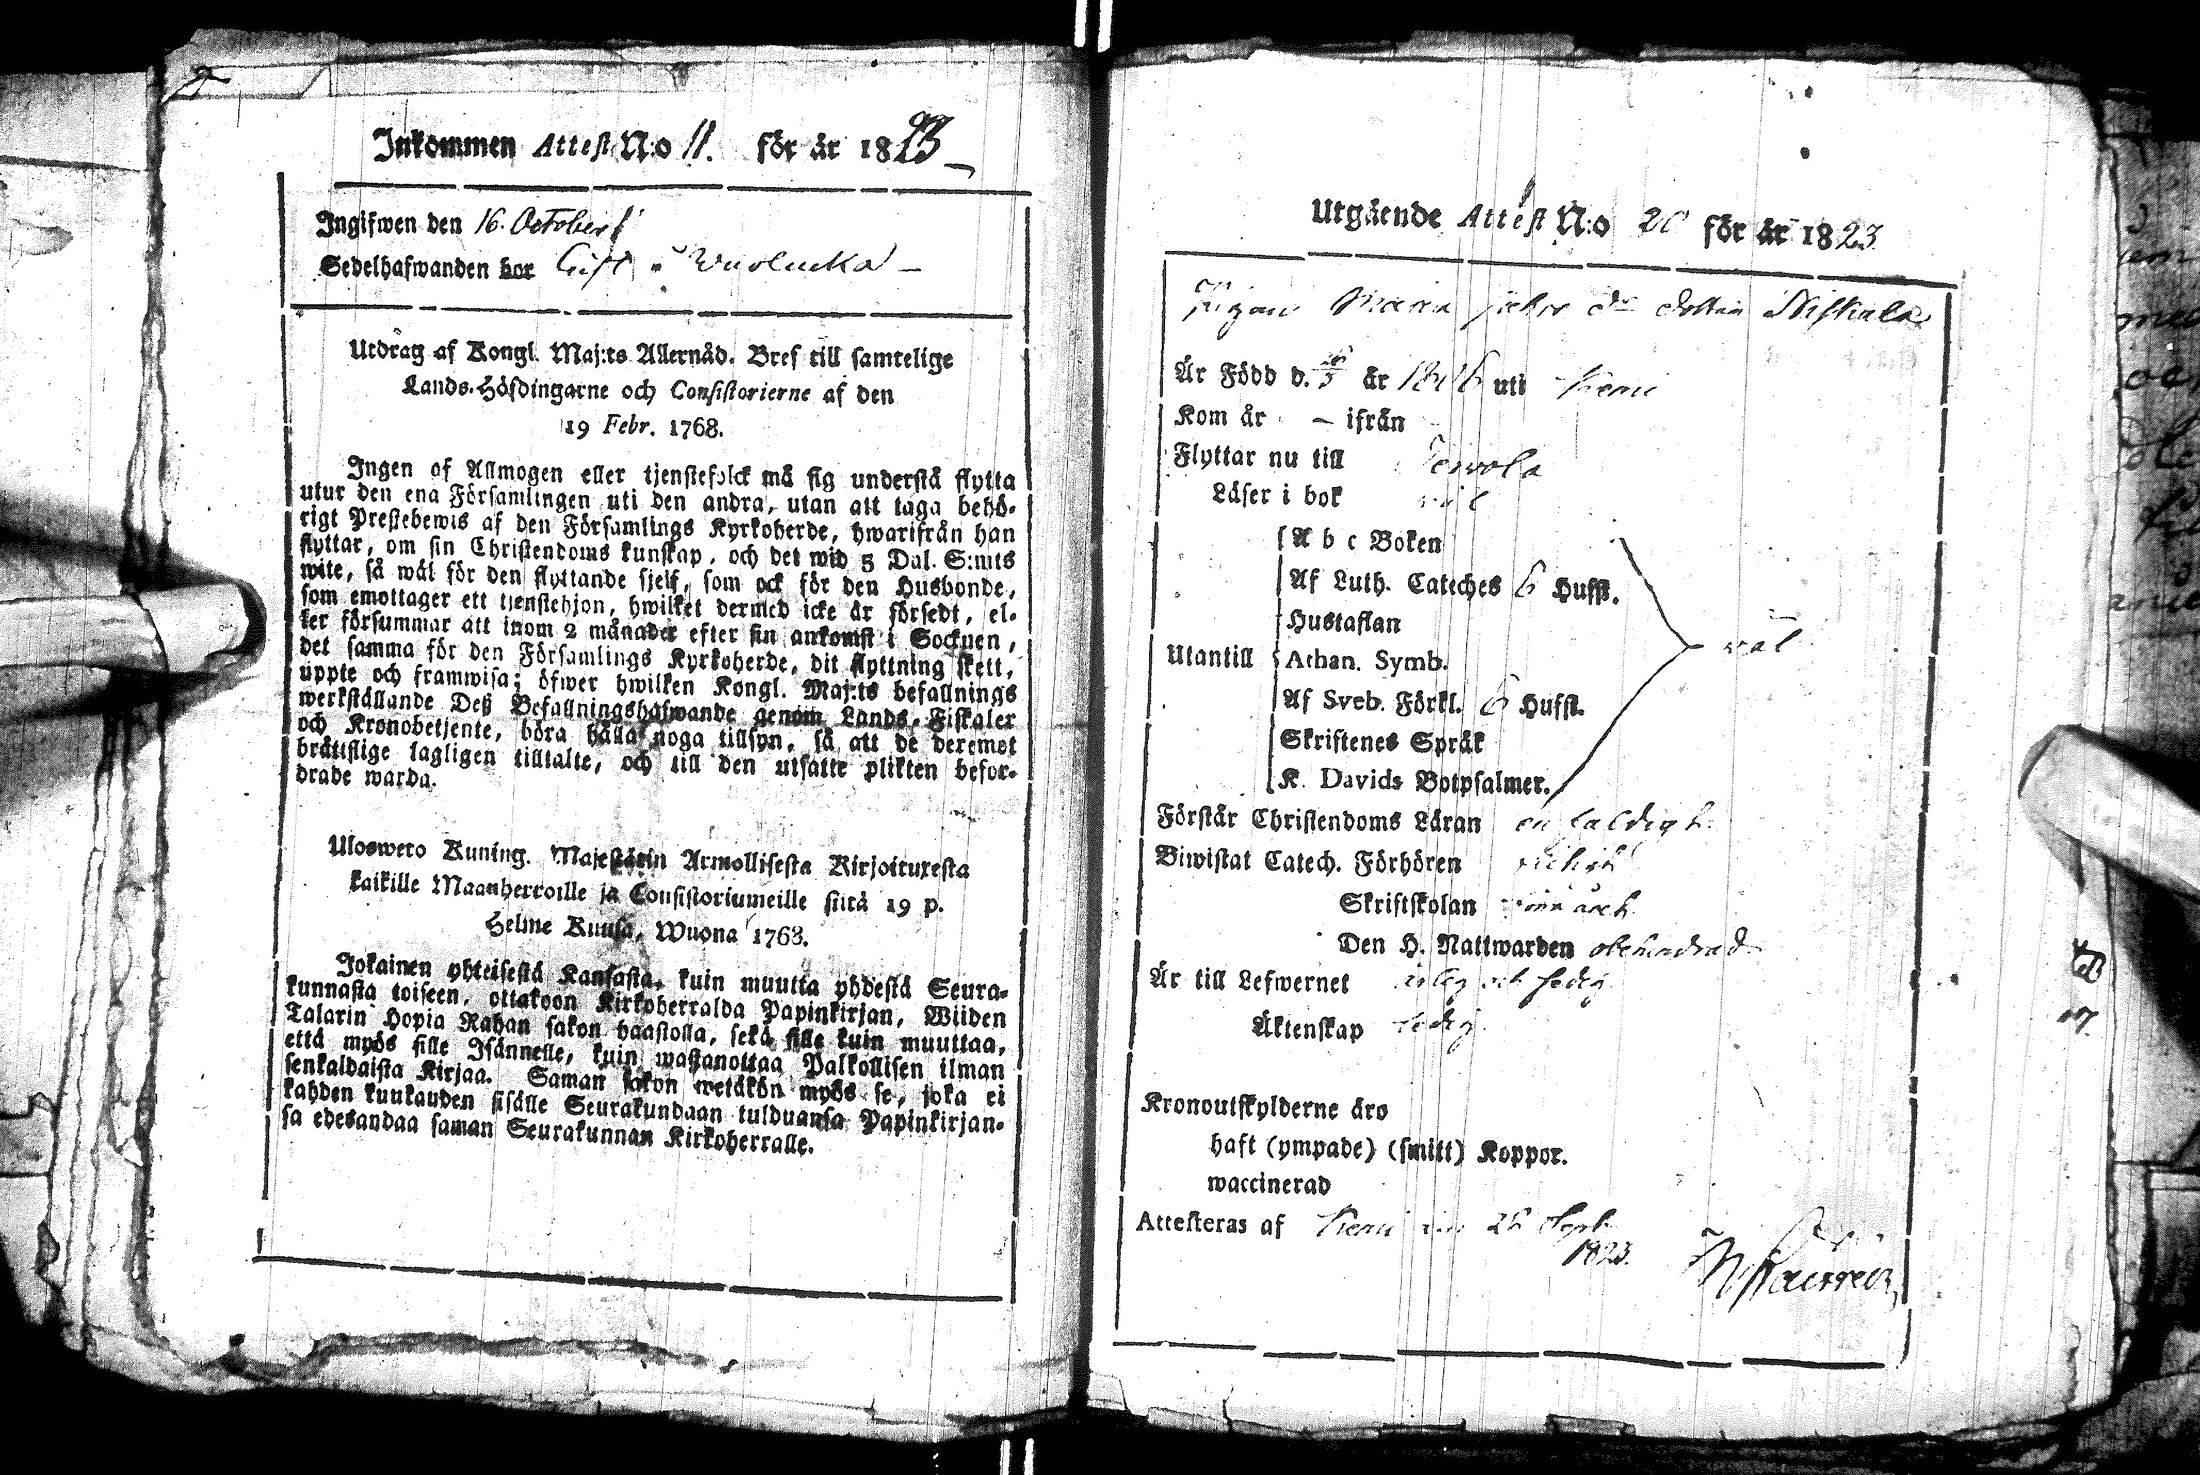 Inkommen Attest N:o 11. för år 1823
Ingifwen den 16. October
Sedelhafwanden bor Gift i
Utdrag af Kongl. Maj:ts Allernåd. Bref till samtelige
Lands-Höfdingarne och Consistorierne af den
19 Febr. 1768.
Ingen af Allmogen eller tjenstefolck må sig understå flytta
utur den ena Församlingen uti den andra, utan att taga behö-
rigt Prestebewis af den Församlings Kyrkoherde, hwarifrån han
flyttar, om sin Christendoms kunskap, och det wid 5 Dal. S:mts
wite, så wäl för den flyttande sjelf, som ock för den Husbonde,
som emottager ett tjenstehjon, hwilket dermed icke är försedt, el-
ler försummar att inom 2 månader efter sin ankomst i Socknen,
det samma för den Församlings Kyrkoherde, dit flyttning skett,
uppte och framwisa; öfwer hwilken Kongl. Maj:ts befallnings
werkställande Deß Befallningshafwande genom Lands-Fiskaler
och Kronobetjente, böra hålla noga tillsyn, så att de deremot
bråttslige lagligen tilltalte, och till den utsatte plikten befor-
drade warda.
Ulosweto Kuning. Majestätin Armollisesta Kirjoituxesta
kaikille Maanherroille ja Consistoriumeille siitä 19 p.
Helme Kuusa, Wuona 1768.
Jokainen yhteisestä Kansasta, kuin muutta yhdestä Seura-
kunnasta toiseen, ottakoon Kirkoherralda Papinkirjan, Wiiden
Talarin Hopia Rahan sakon haastolla, sekä sille kuin muuttaa,
että myös sille Isännelle, kuin wastanottaa Palkollisen ilman
senkaldaista Kirjaa. Saman sakon wetäkön myös se, joka ei
kahden kuukauden sisälle Seurakundaan tulduansa Papinkirjan-
sa edesandaa saman Seurakunnan Kirkoherralle.
Utgående Attest N:o 20 för år 1823
Pigan Maria
Är Född d. år 1806 uti Kemi
Kom år – ifrån
Flyttar nu till Terwola
Läser i bok wäl
A b c Boken
Af Luth. Cateches 6 Hufst.
Hustaflan
Utantill Athan. Symb. wäl
Af Sveb. Förkl. 6 Hufst.
Skriftenes Språk
K. Davids Botpsalmer.
Förstår Christendoms Läran enfaldigt
Biwistat Catech. Förhören
Skriftskolan
Den H. Nattwarden obehindrad
Är till Lefwernet ärlig och sedig
Äktenskap ledig
Kronoutskylderne äro
haft (ympade) (smitt) Koppor.
waccinerad
Attesteras af Kemi den 26 Sept.
1823.